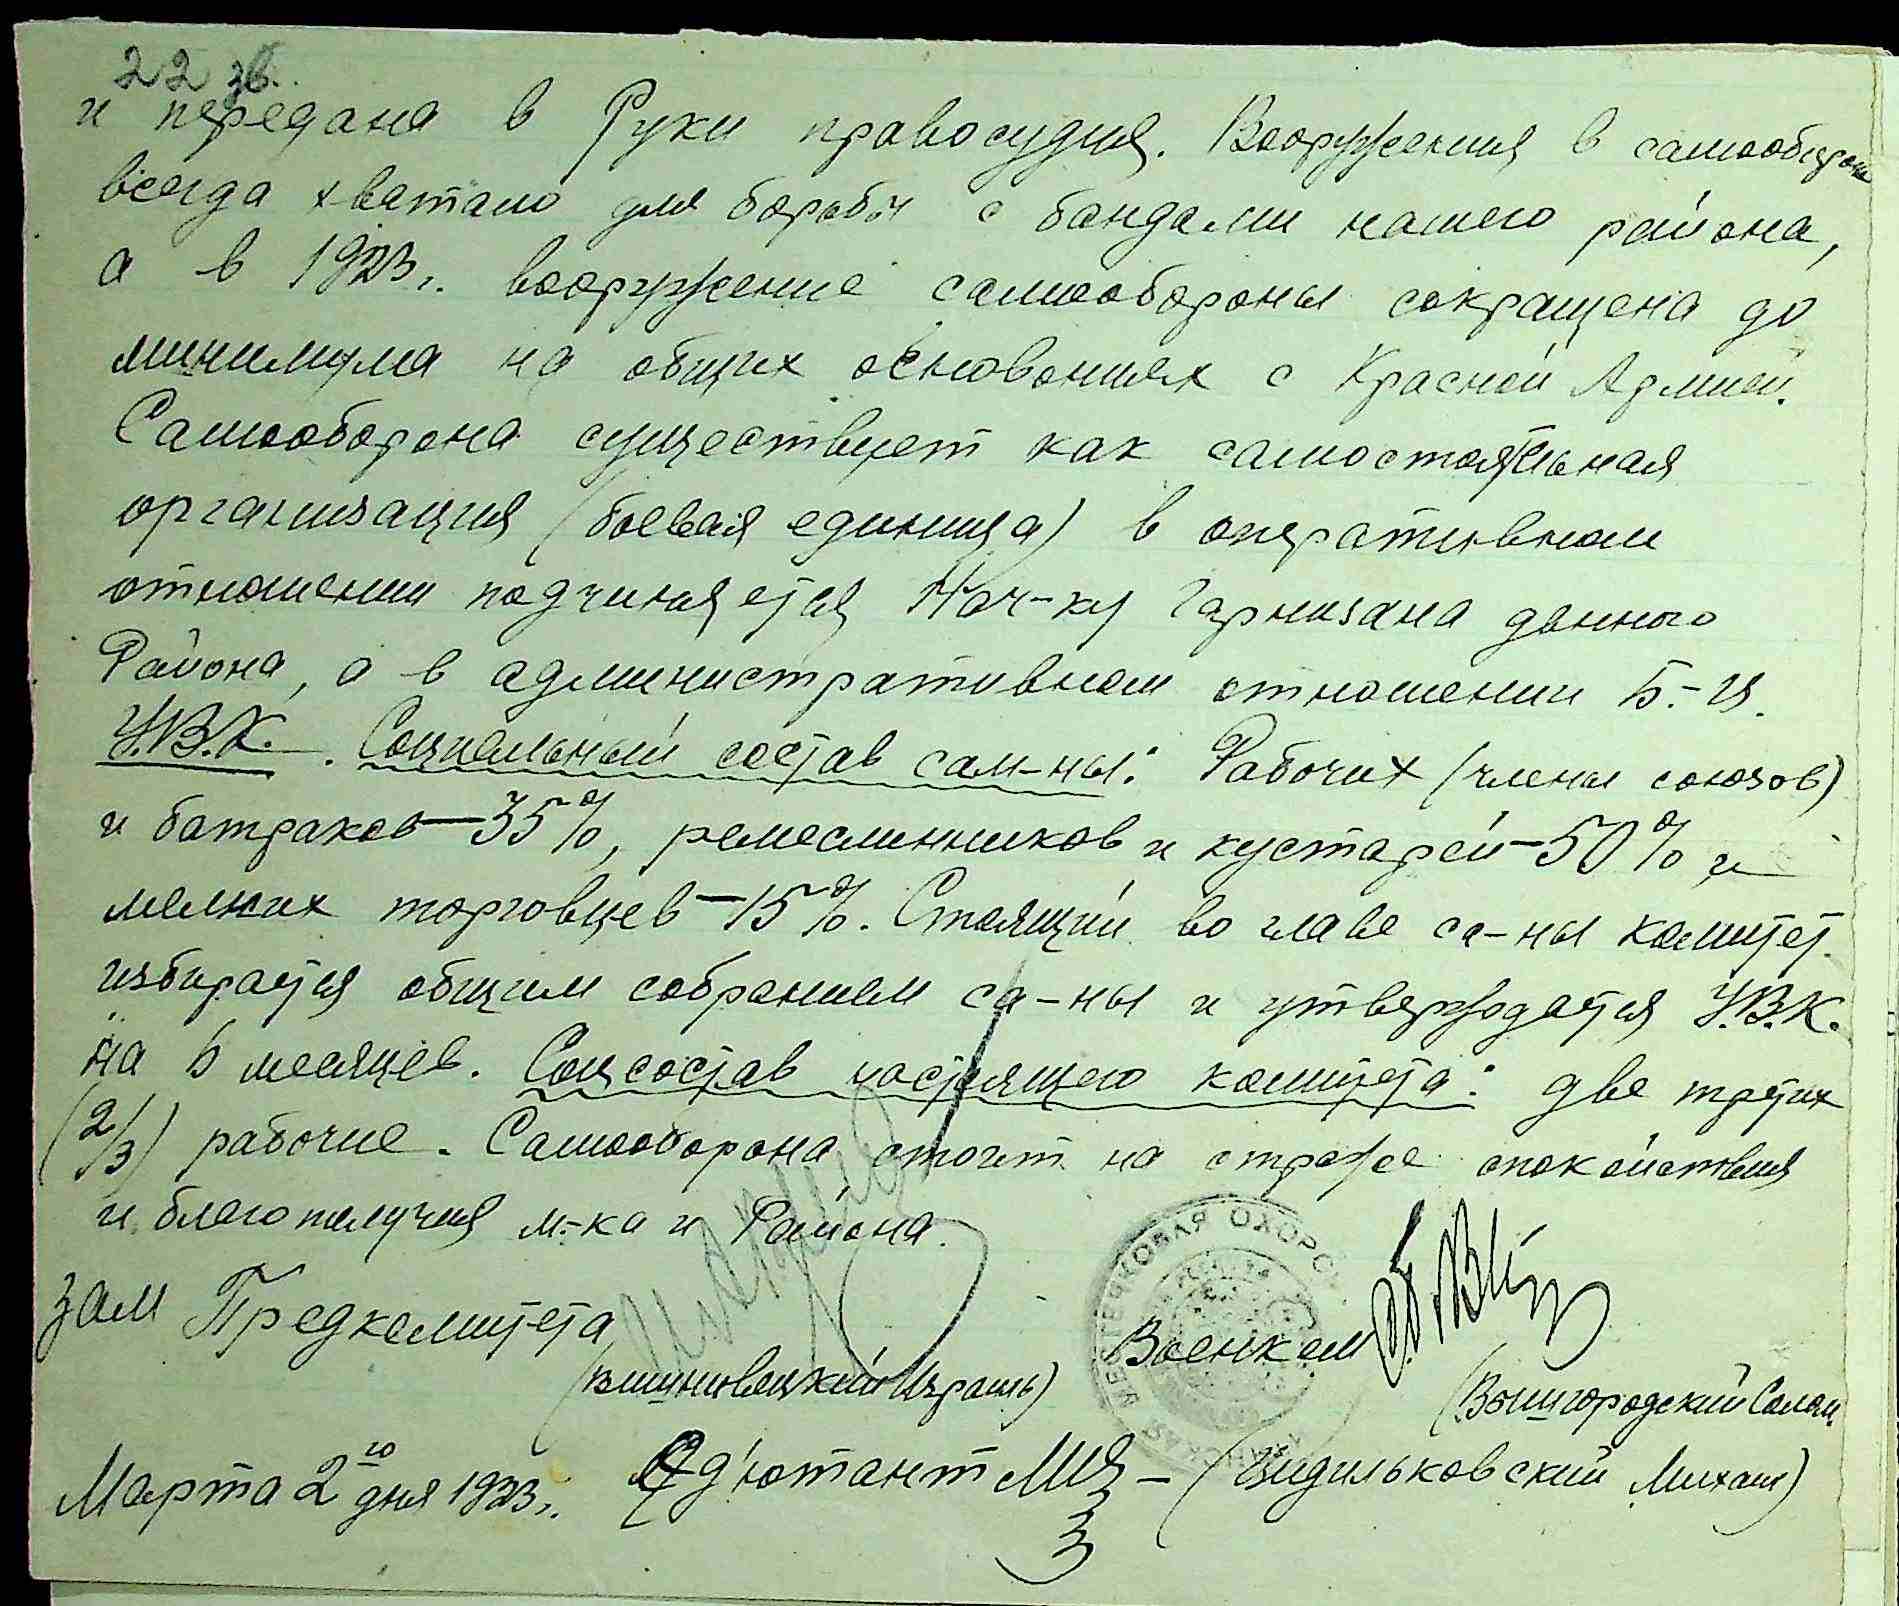 22 зв.
и передана в Руки правосудия. Вооружения в самообороне
всегда хватало для борьбы с бандами нашего района,
а в 1923 г. вооружение самообороны сокращена до
минимума на общих основаниях с Красной Армией.
Самооборона существует как самостоятельная
организация (боевая единица) в оперативном
отношении подчиняется Нач-ку гарнизана данного
Района, а в административном отношении Б.-Ц.
У.В.К. Социальный состав сам-ны: Рабочих (члены союзов)
и батраков — 35%, ремеслинников и кустарей — 50% и
мелких торговцев — 15%. Стоящий во главе са-ны комитет
избирается общим собранием са-ны и утверждается У.В.К.
на 6 месяцев. Соцсостав настоящего комитета: две третих
(2/3) рабочие. Самооборона стоит на страже спокойствия
и благополучия м-ка и Района.
Зам Предкомитета
Военком
(Вишновецкий Израиль)
(Вышгородский Солом
Марта 2го дня 1923 г. Адъютант (Цидильковский Михаил)
ОХОРО